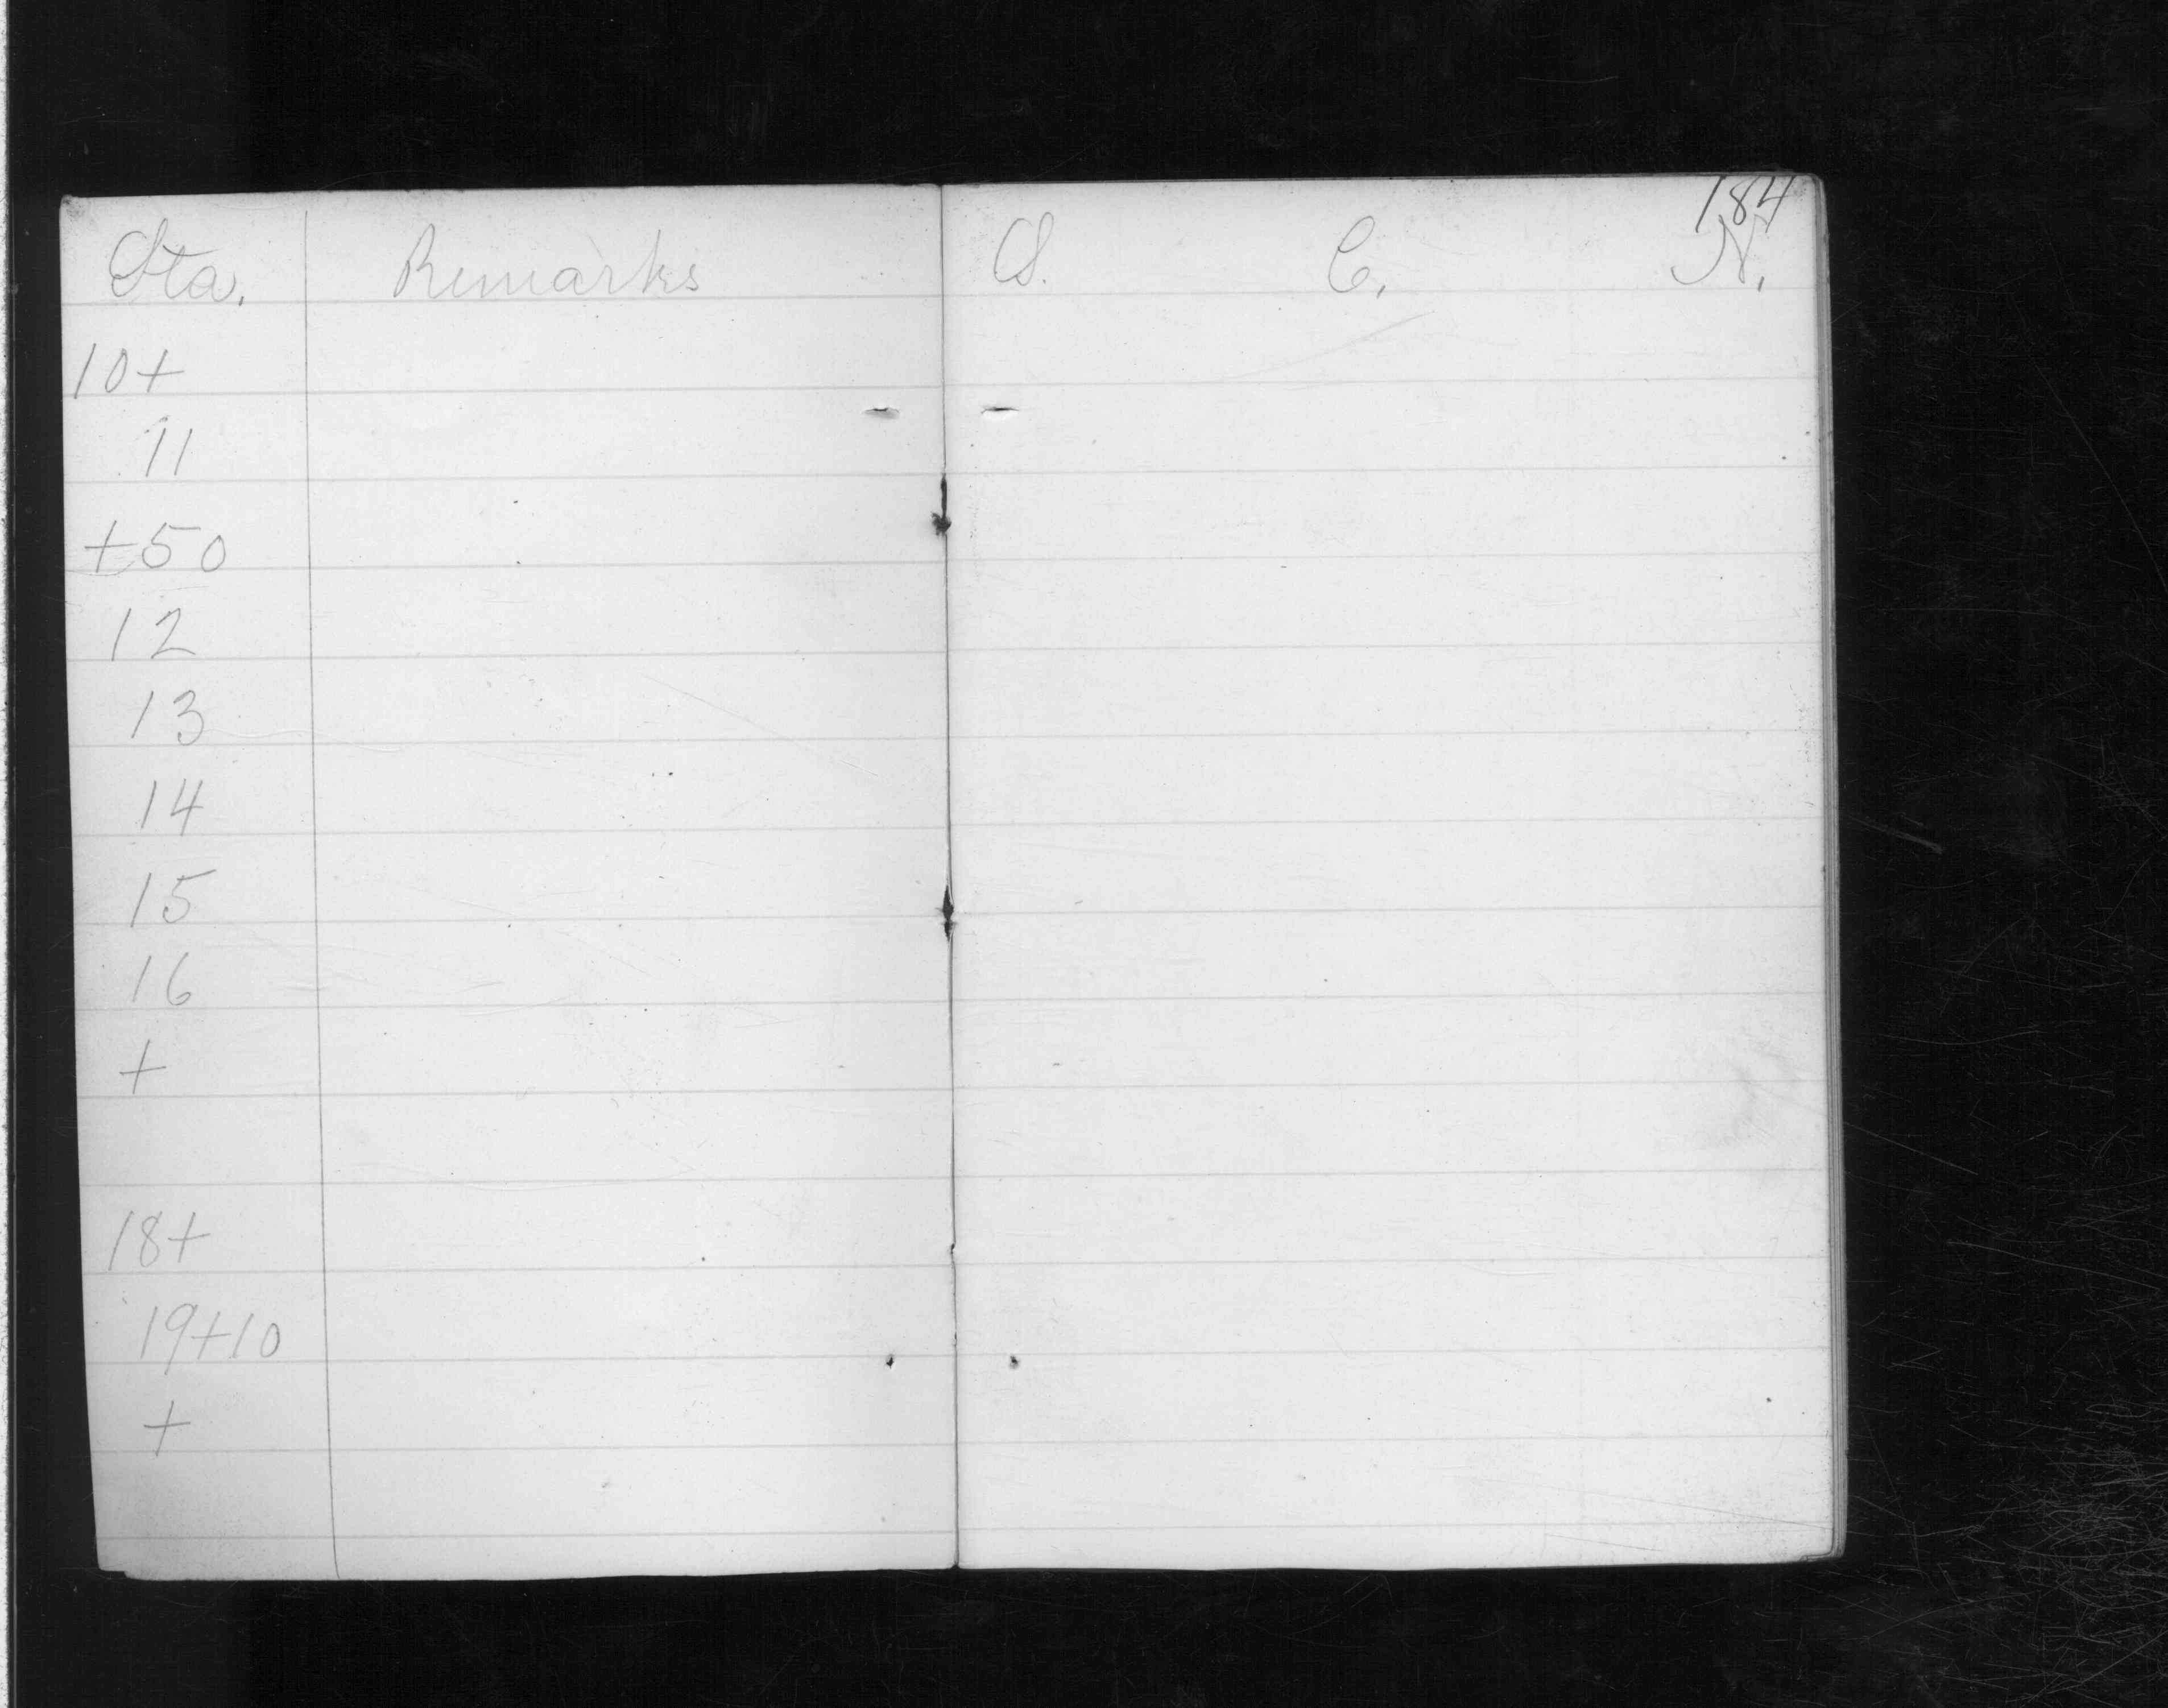 184
Sta. Remarks S. C. N.
10+
11
+50
12
13
14
15
16
+
18+
19+10
+